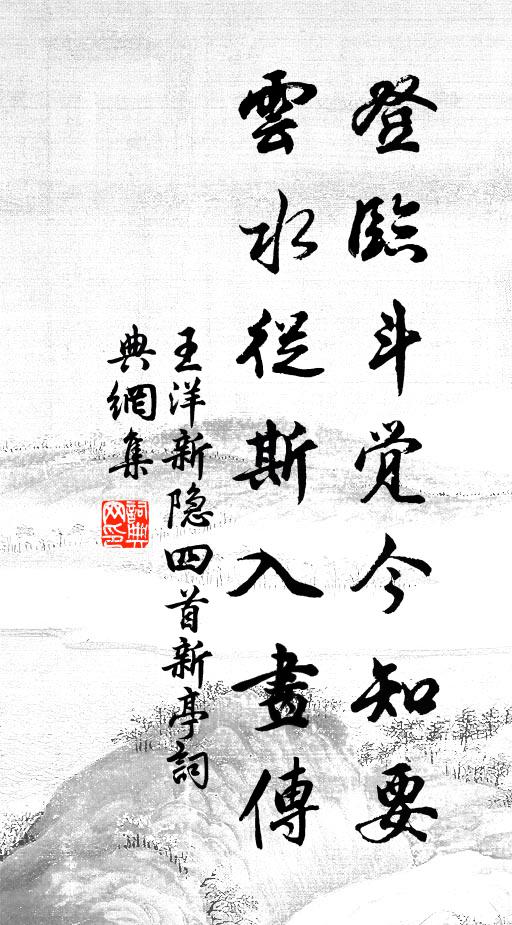 登臨斗觉今知要
雲水從斯入畫傳
王洋新隐四首新亭詞
典網集
詞典网印